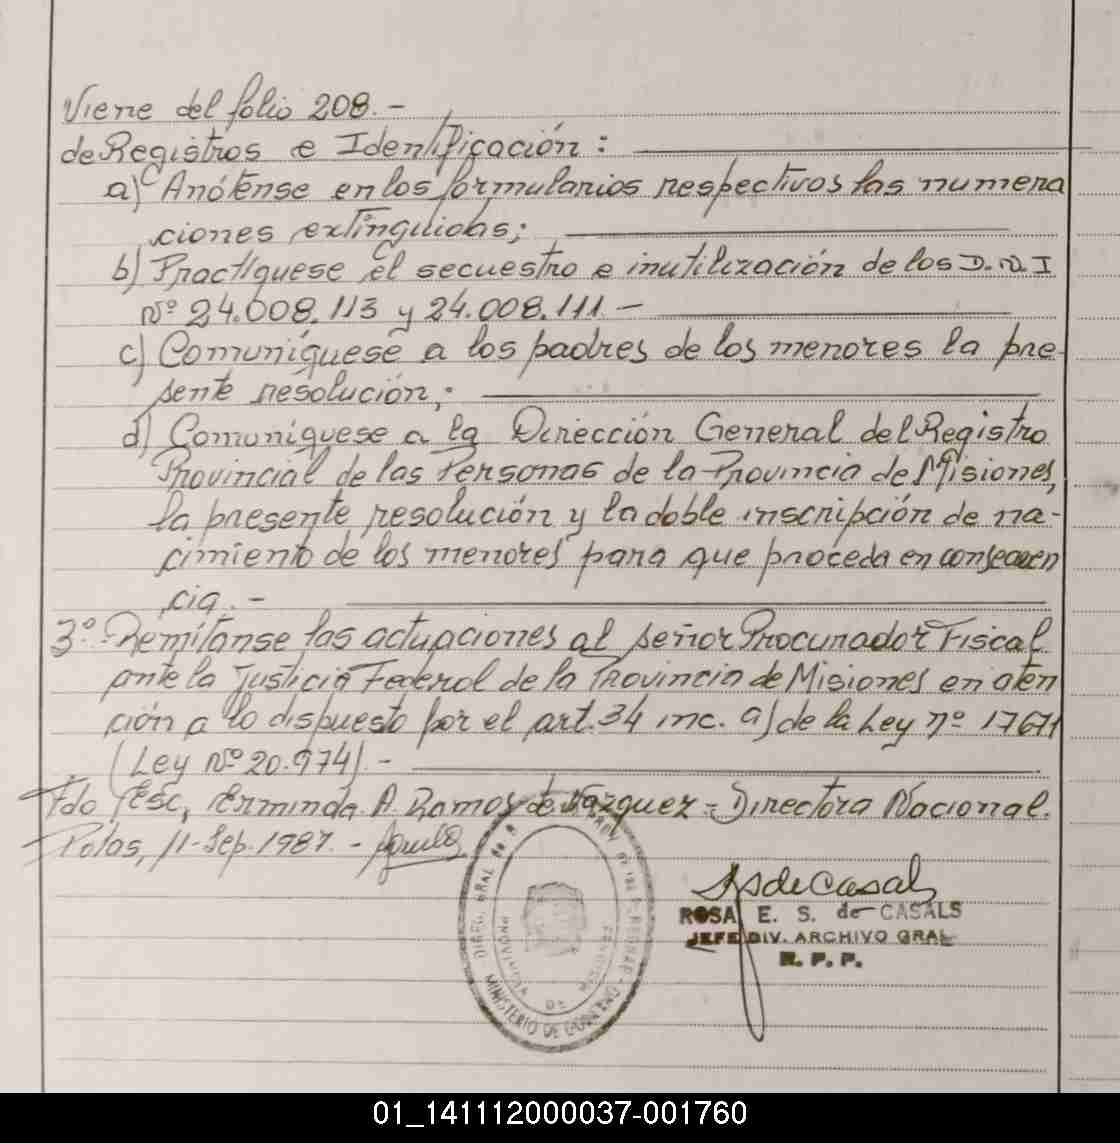 Viene del folio 208.-
de Registros e Identificación:
a) Anótense en los formularios respectivos las numera
ciones extinguidas;
b) Practíquese el secuestro e inutilización de los D.N.I
Nº 24.008.113 y 24.008.111.-
c) Comuníquese a los padres de los menores la pre-
sente resolución;
d) Comuníquese a la Dirección General del Registro
Provincial de las Personas de la Provincia de Misiones,
la presente resolución y la doble inscripción de na-
cimiento de los menores para que proceda en consecuen
cia.-
3º-Remítanse las actuaciones al señor Procurador Fiscal
ante la Justicia Federal de la Provincia de Misiones en aten
ción a lo dispuesto por el art. 34 inc. a) de la Ley nº 17671
(Ley Nº 20.974).-
Fdo Esc, Erminda A. Ramos de Vázquez - Directora Nacional.
Pdas, 11-Sep. 1987.-
DIREC. GRAL DE
DE LAS PERSONAS
MINISTERIO DE GOBIERNO
PROVINCIA DE MISIONES
RSdeCasals
ROSA E. S. de CASALS
JEFE DIV. ARCHIVO GRAL
R. P. P.
01_141112000037-001760